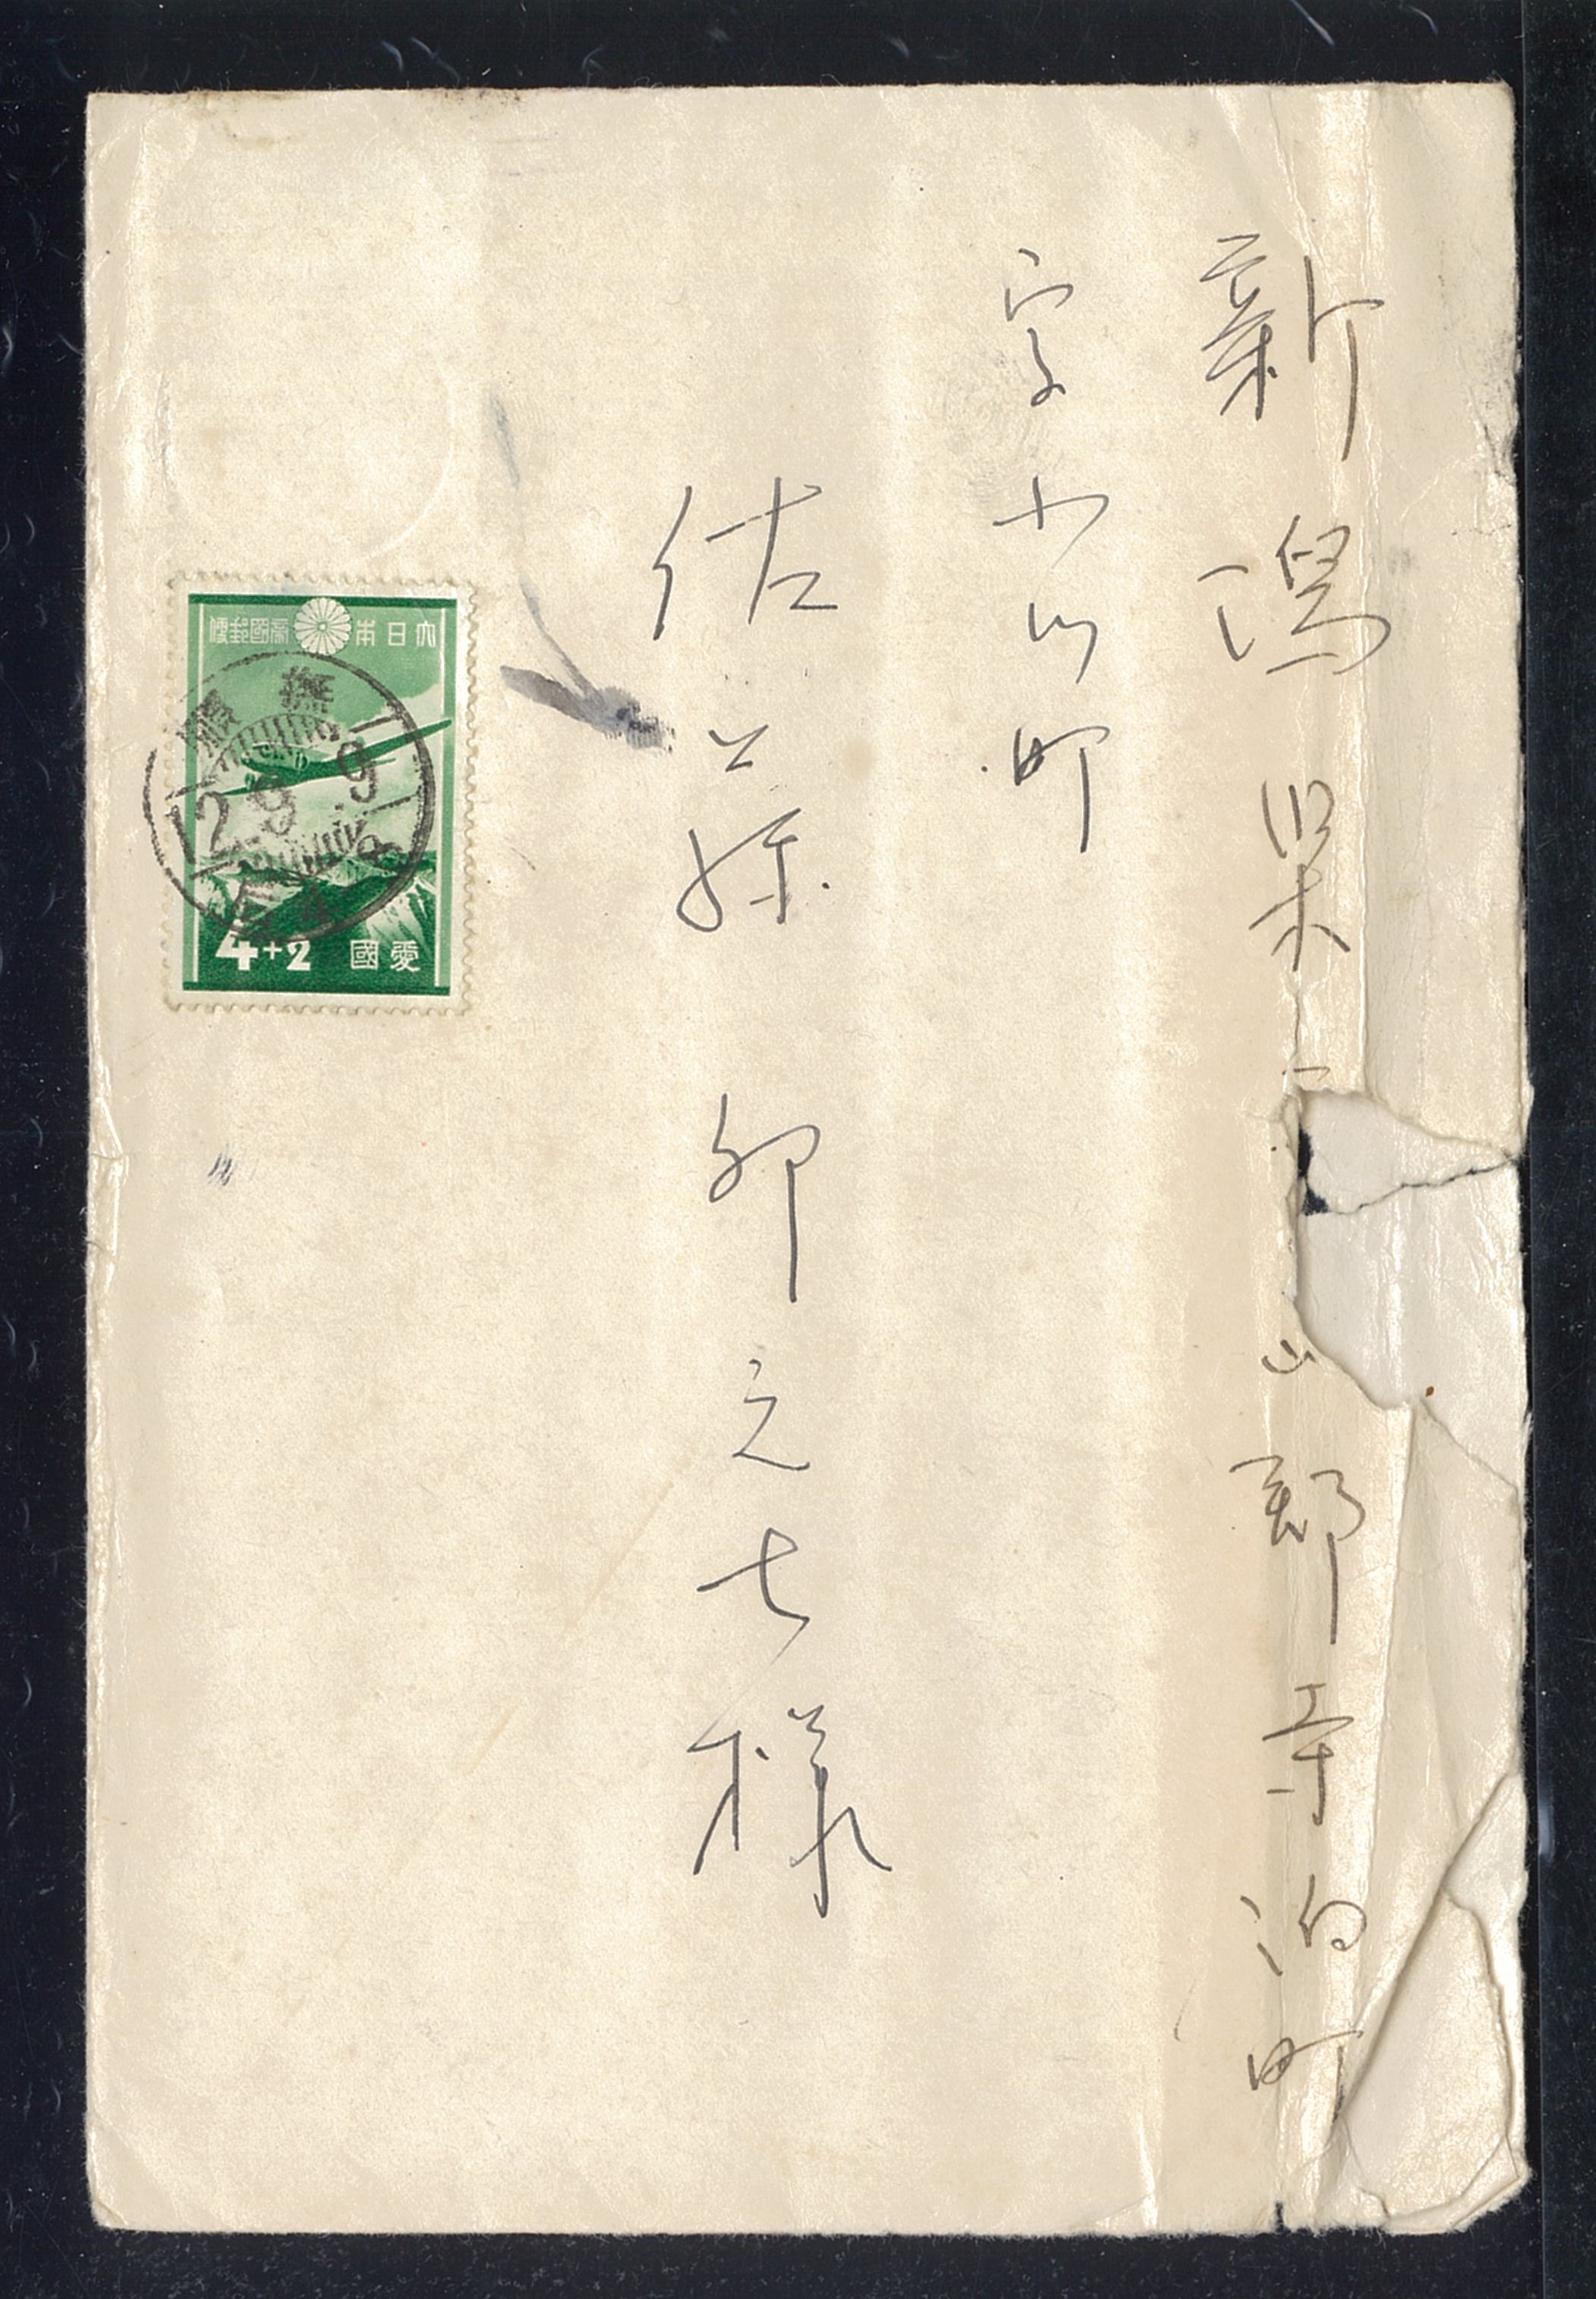 新潟県 郡寺泊町
字 町
佐藤卯之七様
大日本帝國郵便
撫順
12.9.9
4+2 愛國